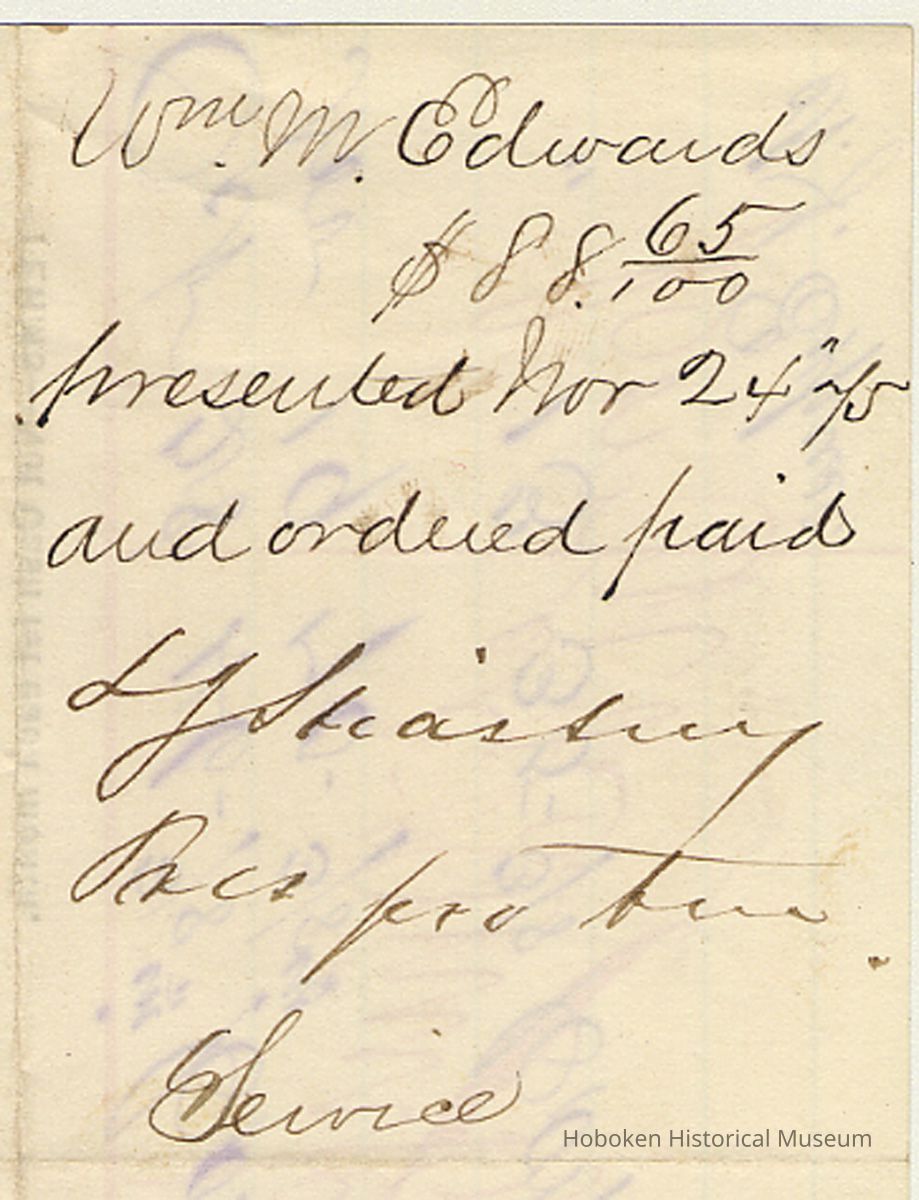 Wm. M. Edwards
$ 88. 65/100
presented Nov 24" 75
and ordered paid
Pres pro tem
Service
Hoboken Historical Museum